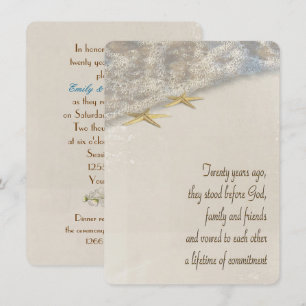 In honor
twenty year
pl
Emily &
as they r
on Saturda
Two thou
at six o'
Seas
1255
You
Dinner re
the ceremony
1266
Twenty years ago,
they stood before God,
family and friends
and vowed to each other
a lifetime of commitment